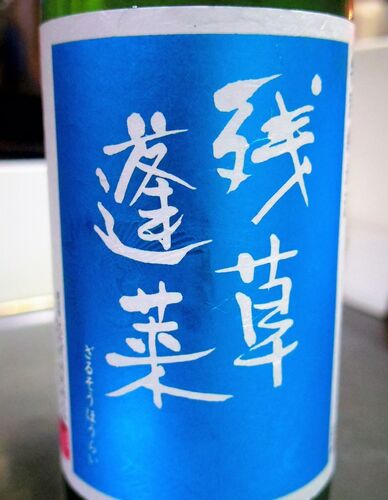 残草
蓬莱
ざるそうほうらい